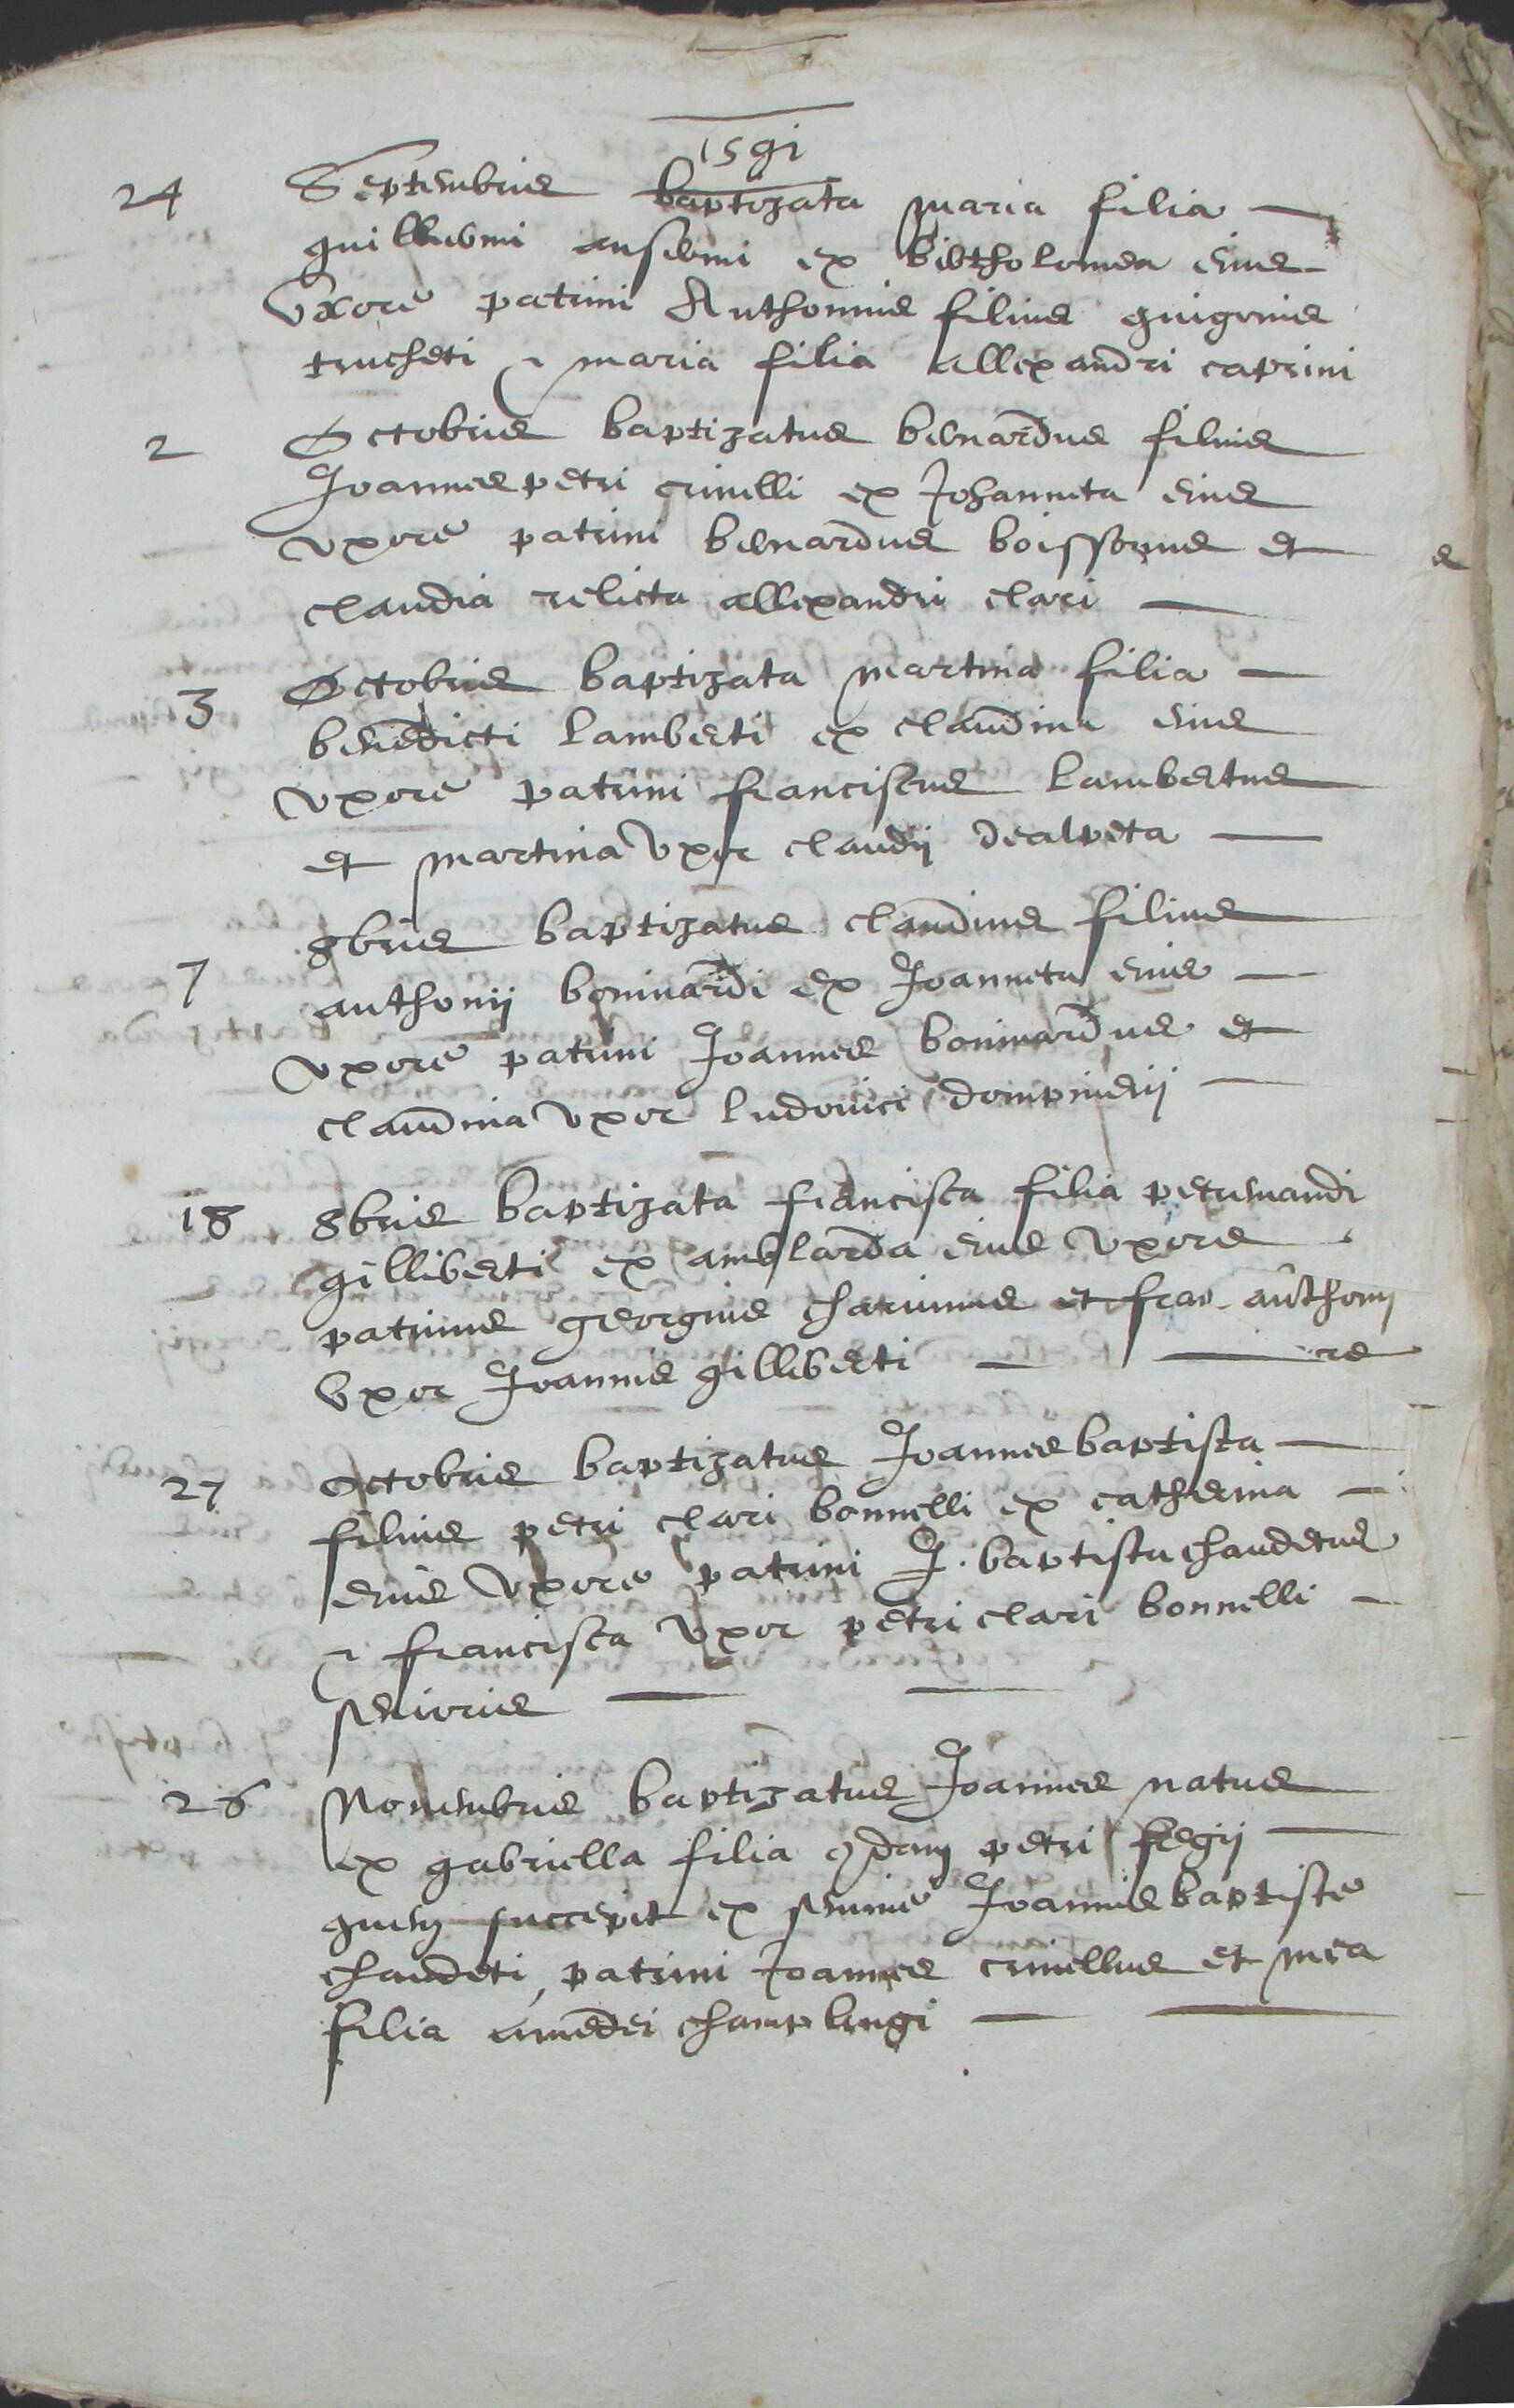 1591
24 Septembris baptizata maria filia
guillermi ansermi ex bertholomea eius
uxore patrini Anthonius filius guigonis
trucheti & maria filia allexandri caprini
2 Octobris baptizatus bernardus filius
Joannespetri crinelli ex Johanneta eius
uxore patrini bernardus boissonus et
claudia relicta allexandri clari
3 Octobris baptizata martina filia
benedicti lamberti ex claudina eius
uxore patrini franciscus lambertus
et martina uxor claudij dealpeta
7 8bris baptizatus claudius filius
anthonij boninardi ex Joanneta eius
uxore patrini Joannes boninardus et
claudina uxor ludovici dompnierij
18 8bris baptizata francisca filia petrimandi
gilliberti ex amblarda eius uxore
patrinus georgius charinus et anthonij
uxor Joannis gilliberti re
27 octobris baptizatus Joannesbaptista
filius petri clari bonnelli ex catherina
eius uxore patrini J. baptista chaudetus
& francisca uxor petri clari bonnelli
senioris
26 Novembris baptizatus Joannes natus
ex gabriella filia qdam petri fegij
quem succepit ex semine Joannisbaptiste
chaudeti, patrini Joannes crinellus et mea
filia amedei champlengi